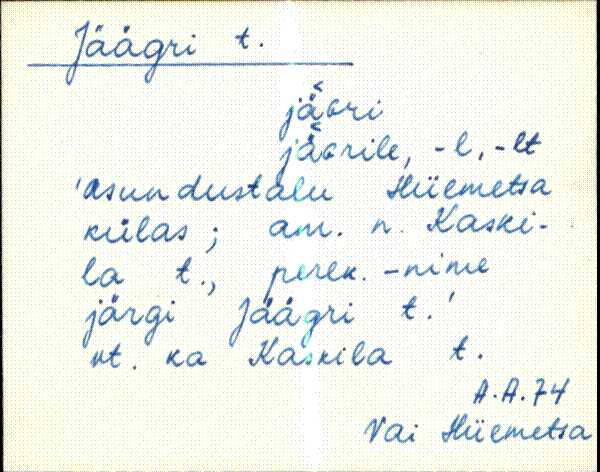 Jäägri t.
jä̆ɢri
jä̆ɢrile, -l, -lt
'asundustalu Hiiemetsa
külas; am. n. Kaski-
la t., perek. -nime
järgi Jäägri t.'
vt. ka Kaskila t.
A.A.74
Vai Hiiemetsa